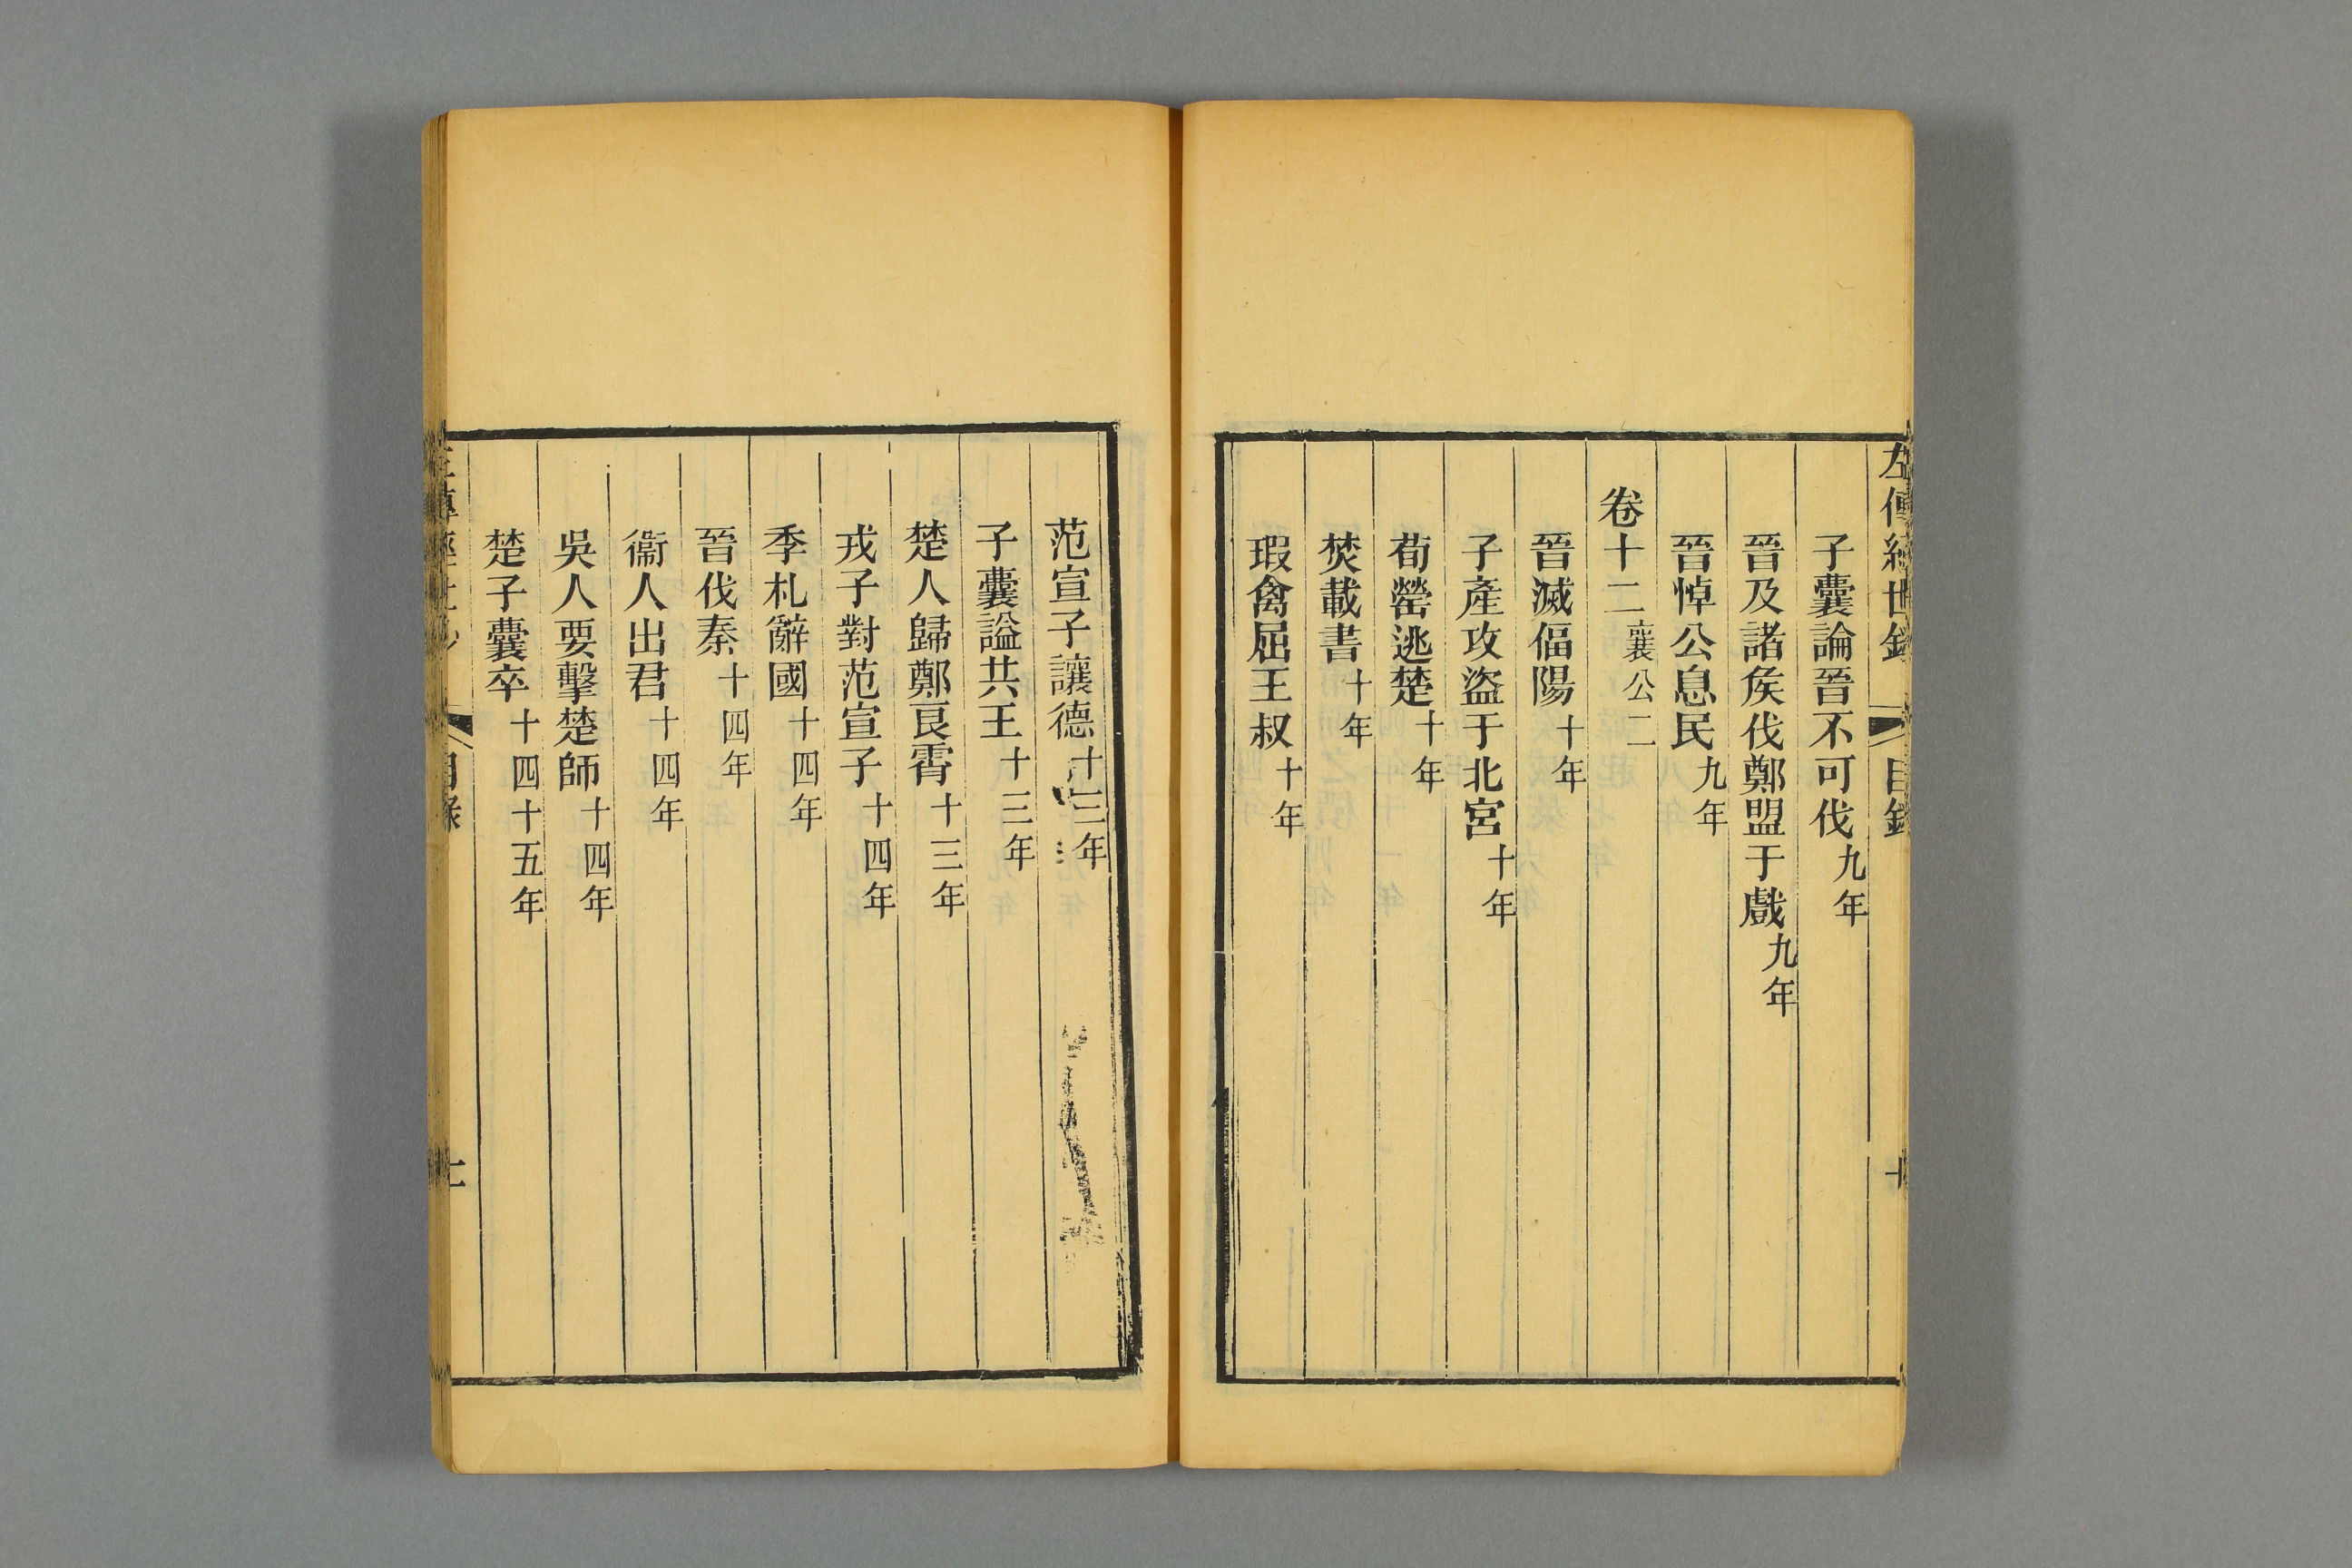 左傳經世鈔 目錄 十
子囊論晉不可伐九年
晉及諸侯伐鄭盟于戲九年
晉悼公息民九年
卷十二襄公二
晉滅偪陽十年
子產攻盜于北宮十年
荀罃逃楚十年
焚載書十年
瑕禽屈王叔十年
范宣子讓德十三年
子囊謚共王十三年
楚人歸鄭良霄十三年
戎子對范宣子十四年
季札辭國十四年
晉伐秦十四年
衞人出君十四年
吳人要擊楚師十四年
楚子囊卒十四十五年
目錄